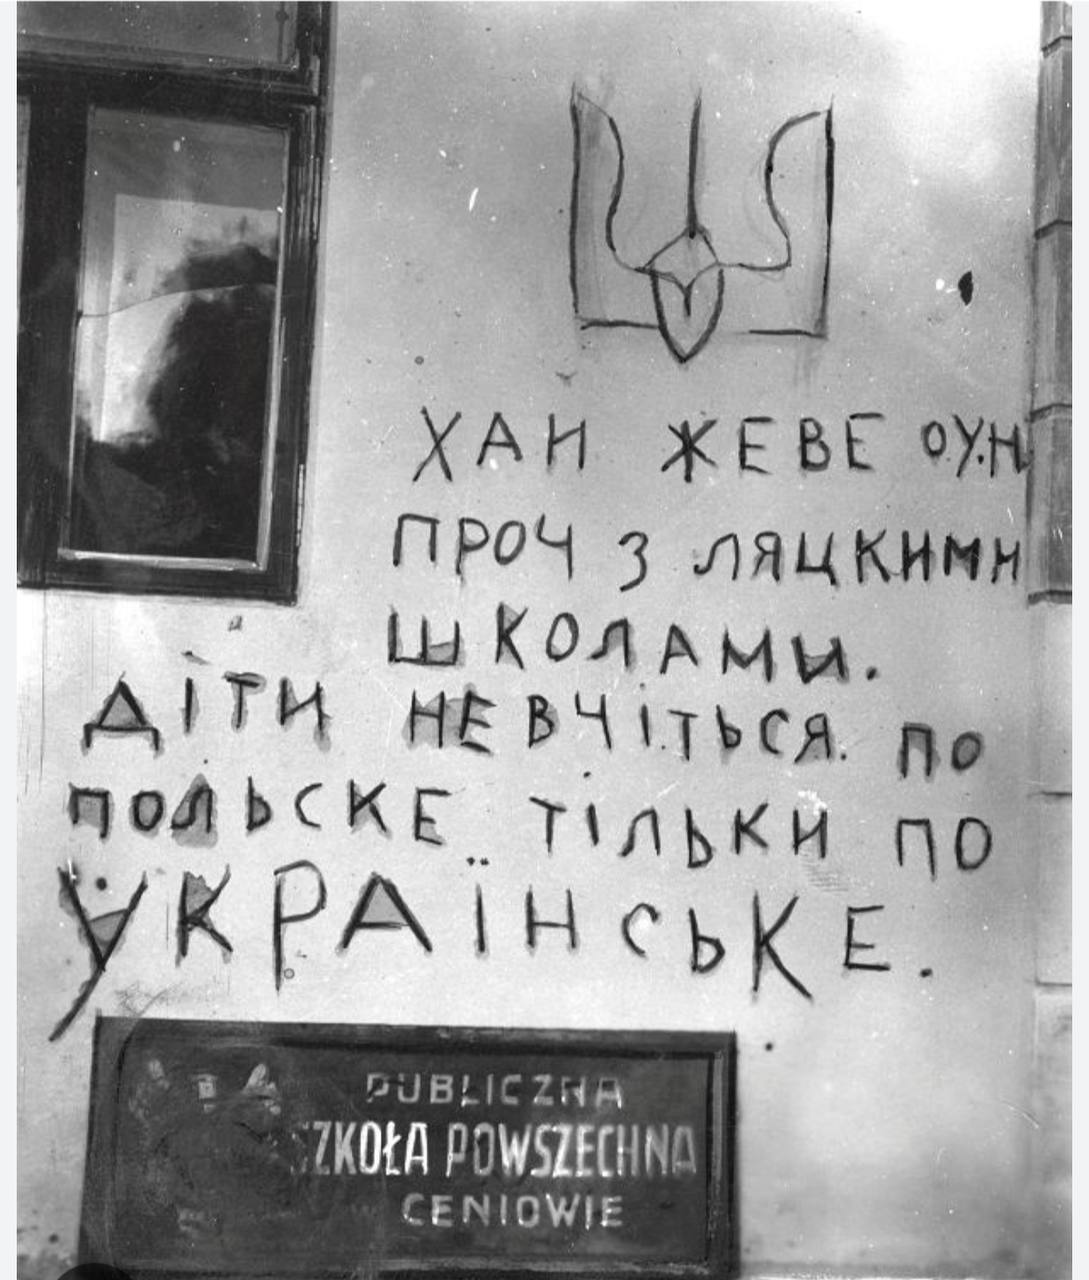 ХАН ЖЕВЕ О.У.Н
ПРОЧ З ЛЯЦКИМИ
ШКОЛАМИ.
ДІТИ НЕ ВЧІТЬСЯ. ПО
ПОЛЬСКЕ ТІЛЬКИ ПО
УКРАЇНСЬКЕ.
PUBLICZNA
SZKOŁA POWSZECHNA
CENIOWIE